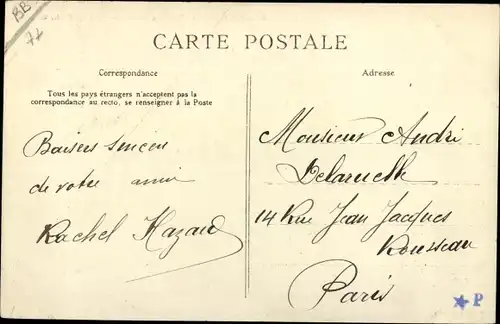 BB
77
CARTE POSTALE
Correspondance
Tous les pays étrangers n'acceptent pas la
correspondance au recto, se renseigner à la Poste
Baisers sincères
de votre amie
Rachel Hazard
Adresse
Monsieur André
Delaruelle
14 Rue Jean Jacques
Rousseau
Paris
★ P